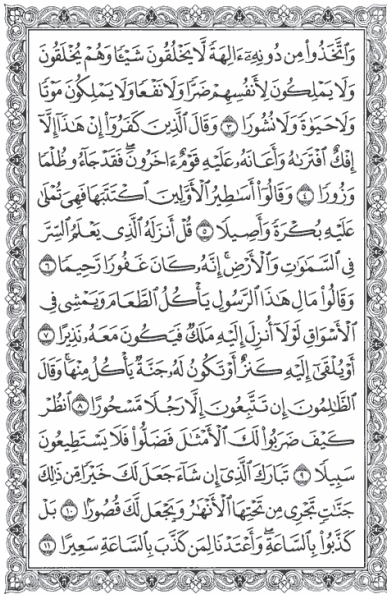 وَٱتَّخَذُوا۟ مِن دُونِهِۦٓ ءَالِهَةً لَّا يَخْلُقُونَ شَيْـًٔا وَهُمْ يُخْلَقُونَ
وَلَا يَمْلِكُونَ لِأَنفُسِهِمْ ضَرًّا وَلَا نَفْعًا وَلَا يَمْلِكُونَ مَوْتًا
وَلَا حَيَوٰةً وَلَا نُشُورًا ٣ وَقَالَ ٱلَّذِينَ كَفَرُوٓا۟ إِنْ هَٰذَآ إِلَّآ
إِفْكٌ ٱفْتَرَىٰهُ وَأَعَانَهُۥ عَلَيْهِ قَوْمٌ ءَاخَرُونَ ۖ فَقَدْ جَآءُو ظُلْمًا
وَزُورًا ٤ وَقَالُوٓا۟ أَسَٰطِيرُ ٱلْأَوَّلِينَ ٱكْتَتَبَهَا فَهِىَ تُمْلَىٰ
عَلَيْهِ بُكْرَةً وَأَصِيلًا ٥ قُلْ أَنزَلَهُ ٱلَّذِى يَعْلَمُ ٱلسِّرَّ
فِى ٱلسَّمَٰوَٰتِ وَٱلْأَرْضِ ۚ إِنَّهُۥ كَانَ غَفُورًا رَّحِيمًا ٦
وَقَالُوا۟ مَالِ هَٰذَا ٱلرَّسُولِ يَأْكُلُ ٱلطَّعَامَ وَيَمْشِى فِى
ٱلْأَسْوَاقِ ۙ لَوْلَآ أُنزِلَ إِلَيْهِ مَلَكٌ فَيَكُونَ مَعَهُۥ نَذِيرًا ٧
أَوْ يُلْقَىٰٓ إِلَيْهِ كَنزٌ أَوْ تَكُونُ لَهُۥ جَنَّةٌ يَأْكُلُ مِنْهَا ۚ وَقَالَ
ٱلظَّٰلِمُونَ إِن تَتَّبِعُونَ إِلَّا رَجُلًا مَّسْحُورًا ٨ ٱنظُرْ
كَيْفَ ضَرَبُوا۟ لَكَ ٱلْأَمْثَٰلَ فَضَلُّوا۟ فَلَا يَسْتَطِيعُونَ
سَبِيلًا ٩ تَبَارَكَ ٱلَّذِىٓ إِن شَآءَ جَعَلَ لَكَ خَيْرًا مِّن ذَٰلِكَ
جَنَّٰتٍ تَجْرِى مِن تَحْتِهَا ٱلْأَنْهَٰرُ وَيَجْعَل لَّكَ قُصُورًۢا ١٠ بَلْ
كَذَّبُوا۟ بِٱلسَّاعَةِ ۖ وَأَعْتَدْنَا لِمَن كَذَّبَ بِٱلسَّاعَةِ سَعِيرًا ١١